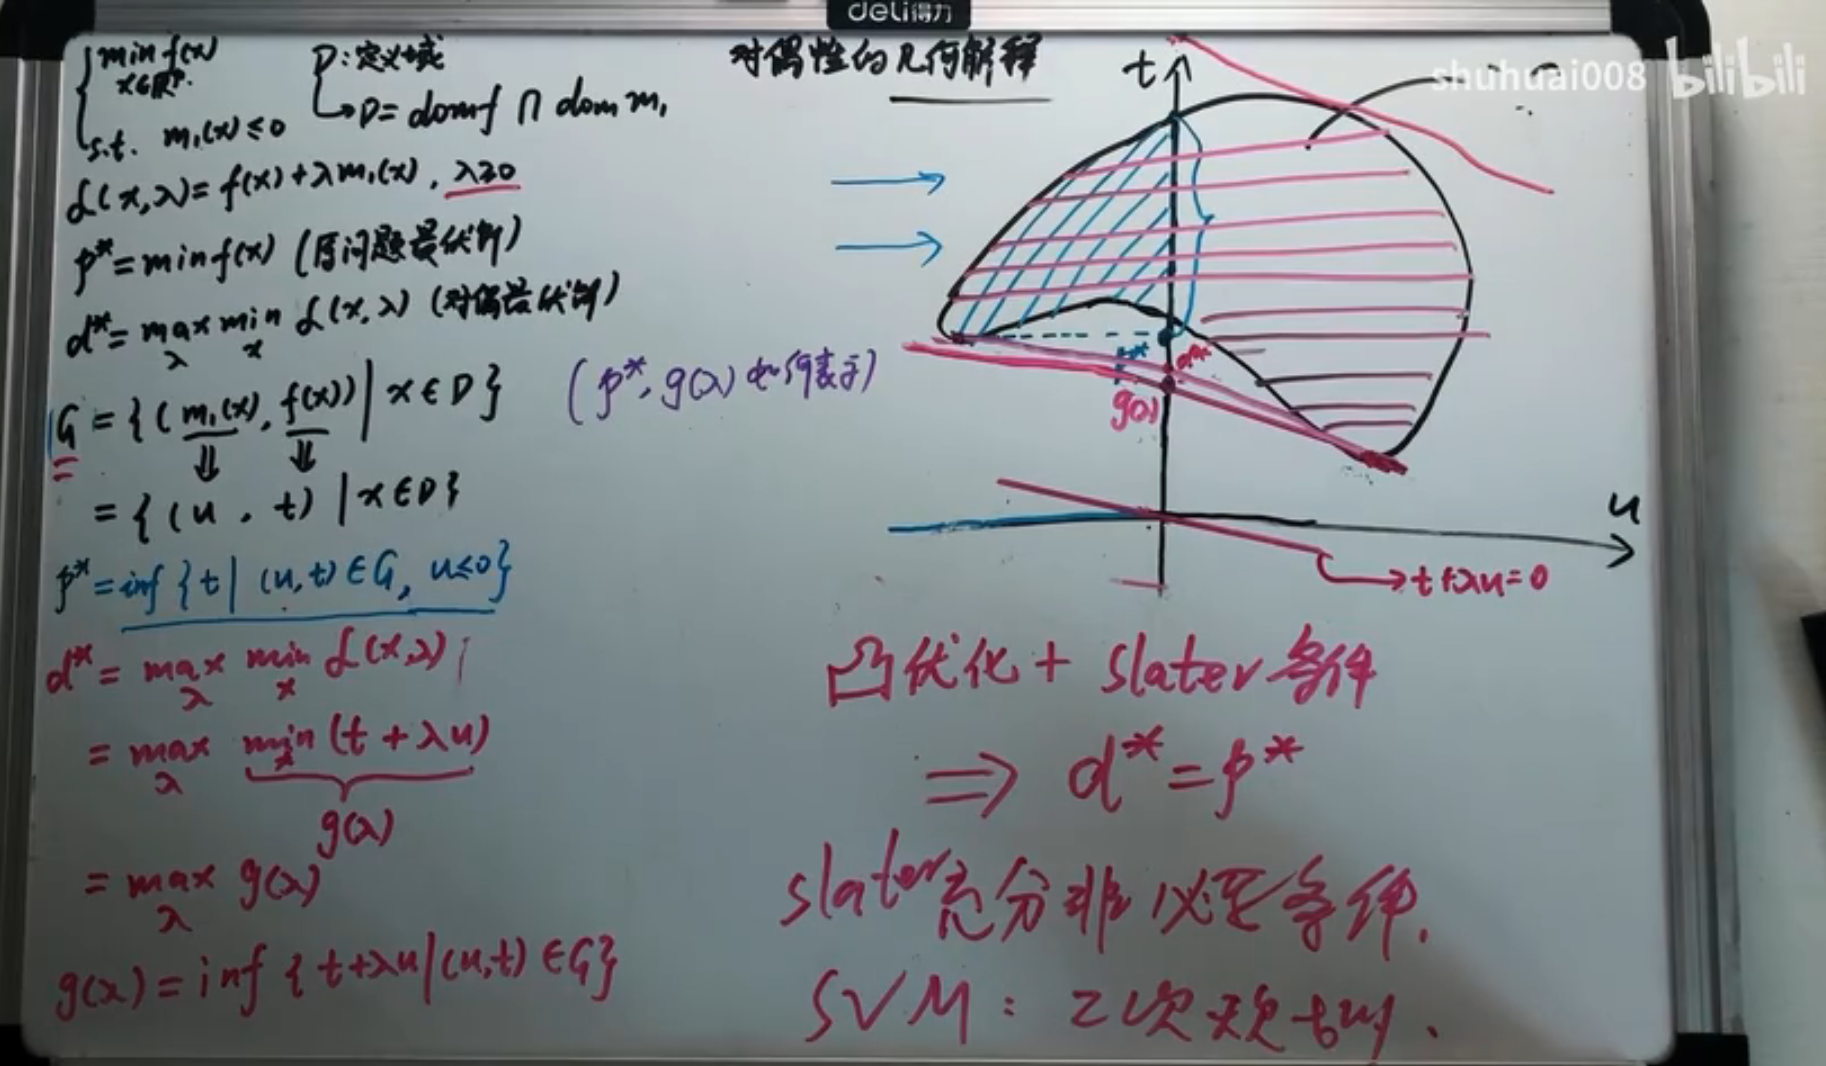 deli得力
shuhuai008 bilibili
min f(x)
x∈ℝᵖ
s.t. m₁(x)≤0
D:定义域
→D=domf ∩ dom m₁
L(x,λ)=f(x)+λm₁(x), λ≥0
p*=minf(x) (原问题最优解)
d*=max min L(x,λ) (对偶最优解)
λ x
G={(m₁(x), f(x))|x∈D}
⇓ ⇓
={(u, t)|x∈D}
(p*, g(λ)如何表示)
p*=inf{t|(u,t)∈G, u≤0}
d*=max min L(x,λ)
λ x
=max min(t+λu)
λ x
g(λ)
=max g(λ)
λ
g(λ)=inf{t+λu|(u,t)∈G}
对偶性的几何解释
t
G
p*
d*
g(λ)
u
→t+λu=0
凸优化+slater条件
⇒ d*=p*
slater充分非必要条件.
SVM:二次规划